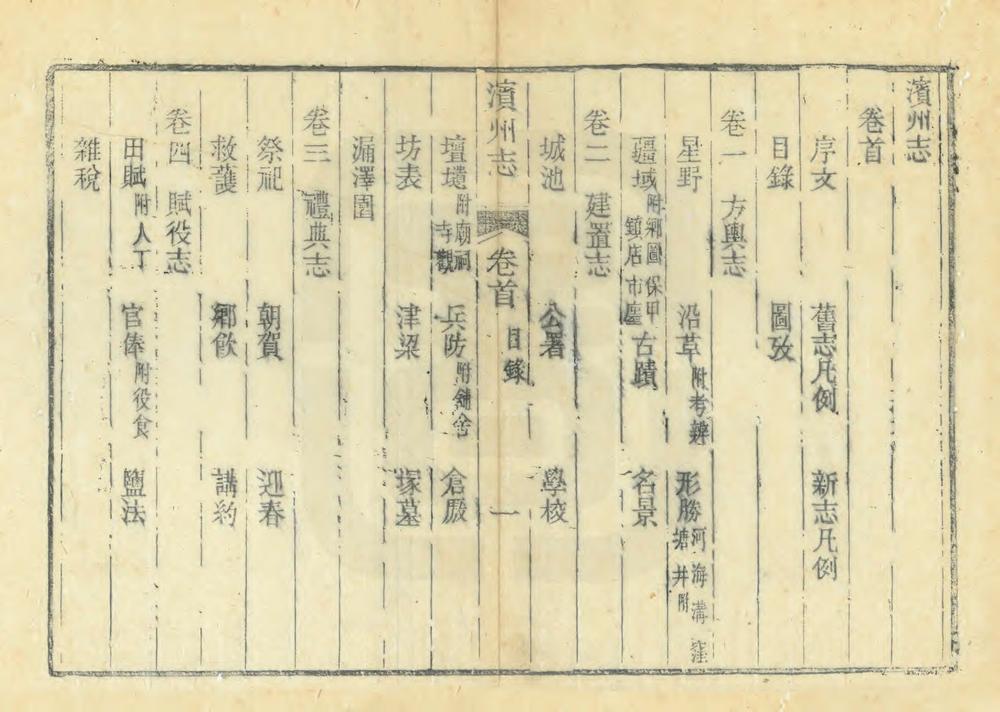 濱州志
卷首
序文 舊志凡例 新志凡例
目錄 圖攷
卷一 方輿志
星野 沿革附考辨 形勝河海溝窪塘井附
疆域附鄉圖保甲鎮店市廛 古蹟 名景
卷二 建置志
城池 公署 學校
濱州志 卷首 目錄 一
壇壝附廟祠寺觀 兵防附鋪舍 倉廒
坊表 津梁 塚墓
漏澤園
卷三 禮典志
祭祀 朝賀 迎春
救護 鄉飲 講約
卷四 賦役志
田賦附人丁 官俸附役食 鹽法
雜稅